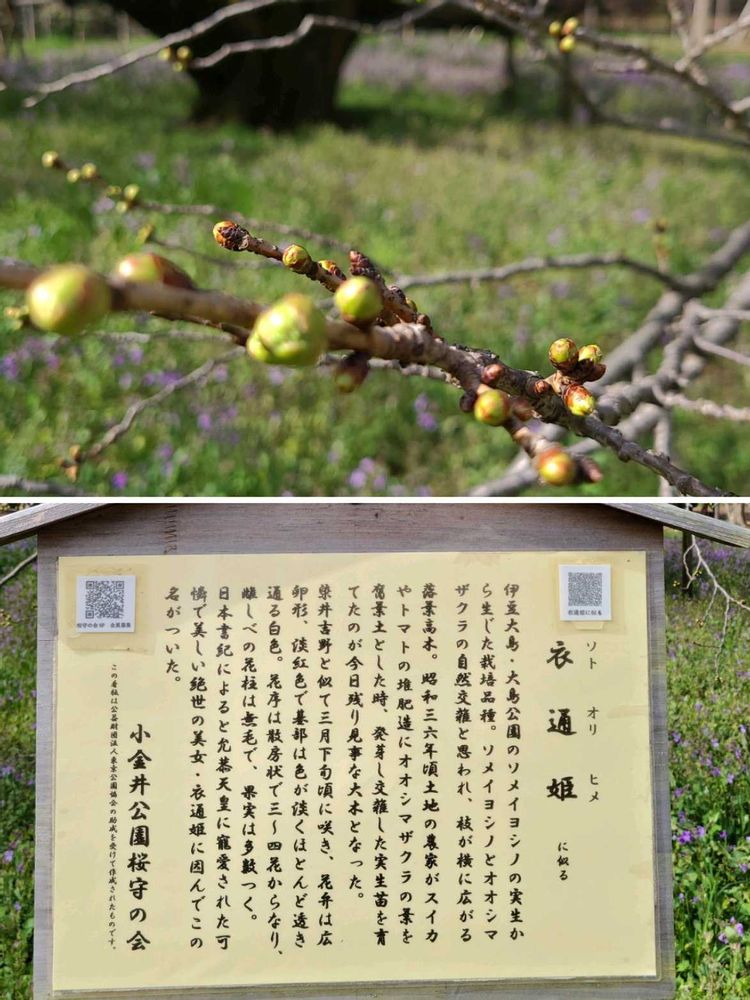 ソト オリ ヒメ
衣通姫 に似る
伊豆大島・大島公園のソメイヨシノの実生か
ら生じた栽培品種。ソメイヨシノとオオシマ
ザクラの自然交雑と思われ、枝が横に広がる
落葉高木。昭和三六年頃土地の農家がスイカ
やトマトの堆肥造にオオシマザクラの葉を
腐葉土とした時、発芽し交雑した実生苗を育
てたのが今日残り見事な大木となった。
染井吉野と似て三月下旬頃に咲き、花弁は広
卵形、淡紅色で基部は色が淡くほとんど透き
通る白色。花序は散房状で三〜四花からなり、
雌しべの花柱は無毛で、果実は多数つく。
日本書紀によると允恭天皇に寵愛された可
憐で美しい絶世の美女・衣通姫に因んでこの
名がついた。
小金井公園桜守の会
この看板は公益財団法人東京公園協会の助成を受けて作成されたものです。
桜守の会HP 会員募集
衣通姫に似る